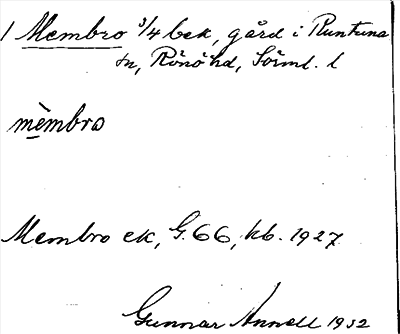 1 Membro 3/4 bek, gård i Runtuna
sn, Rönö hd, Sörml. l
mèmbro
Membro ek, G. 66, kb. 1927
Gunnar Annell 1932